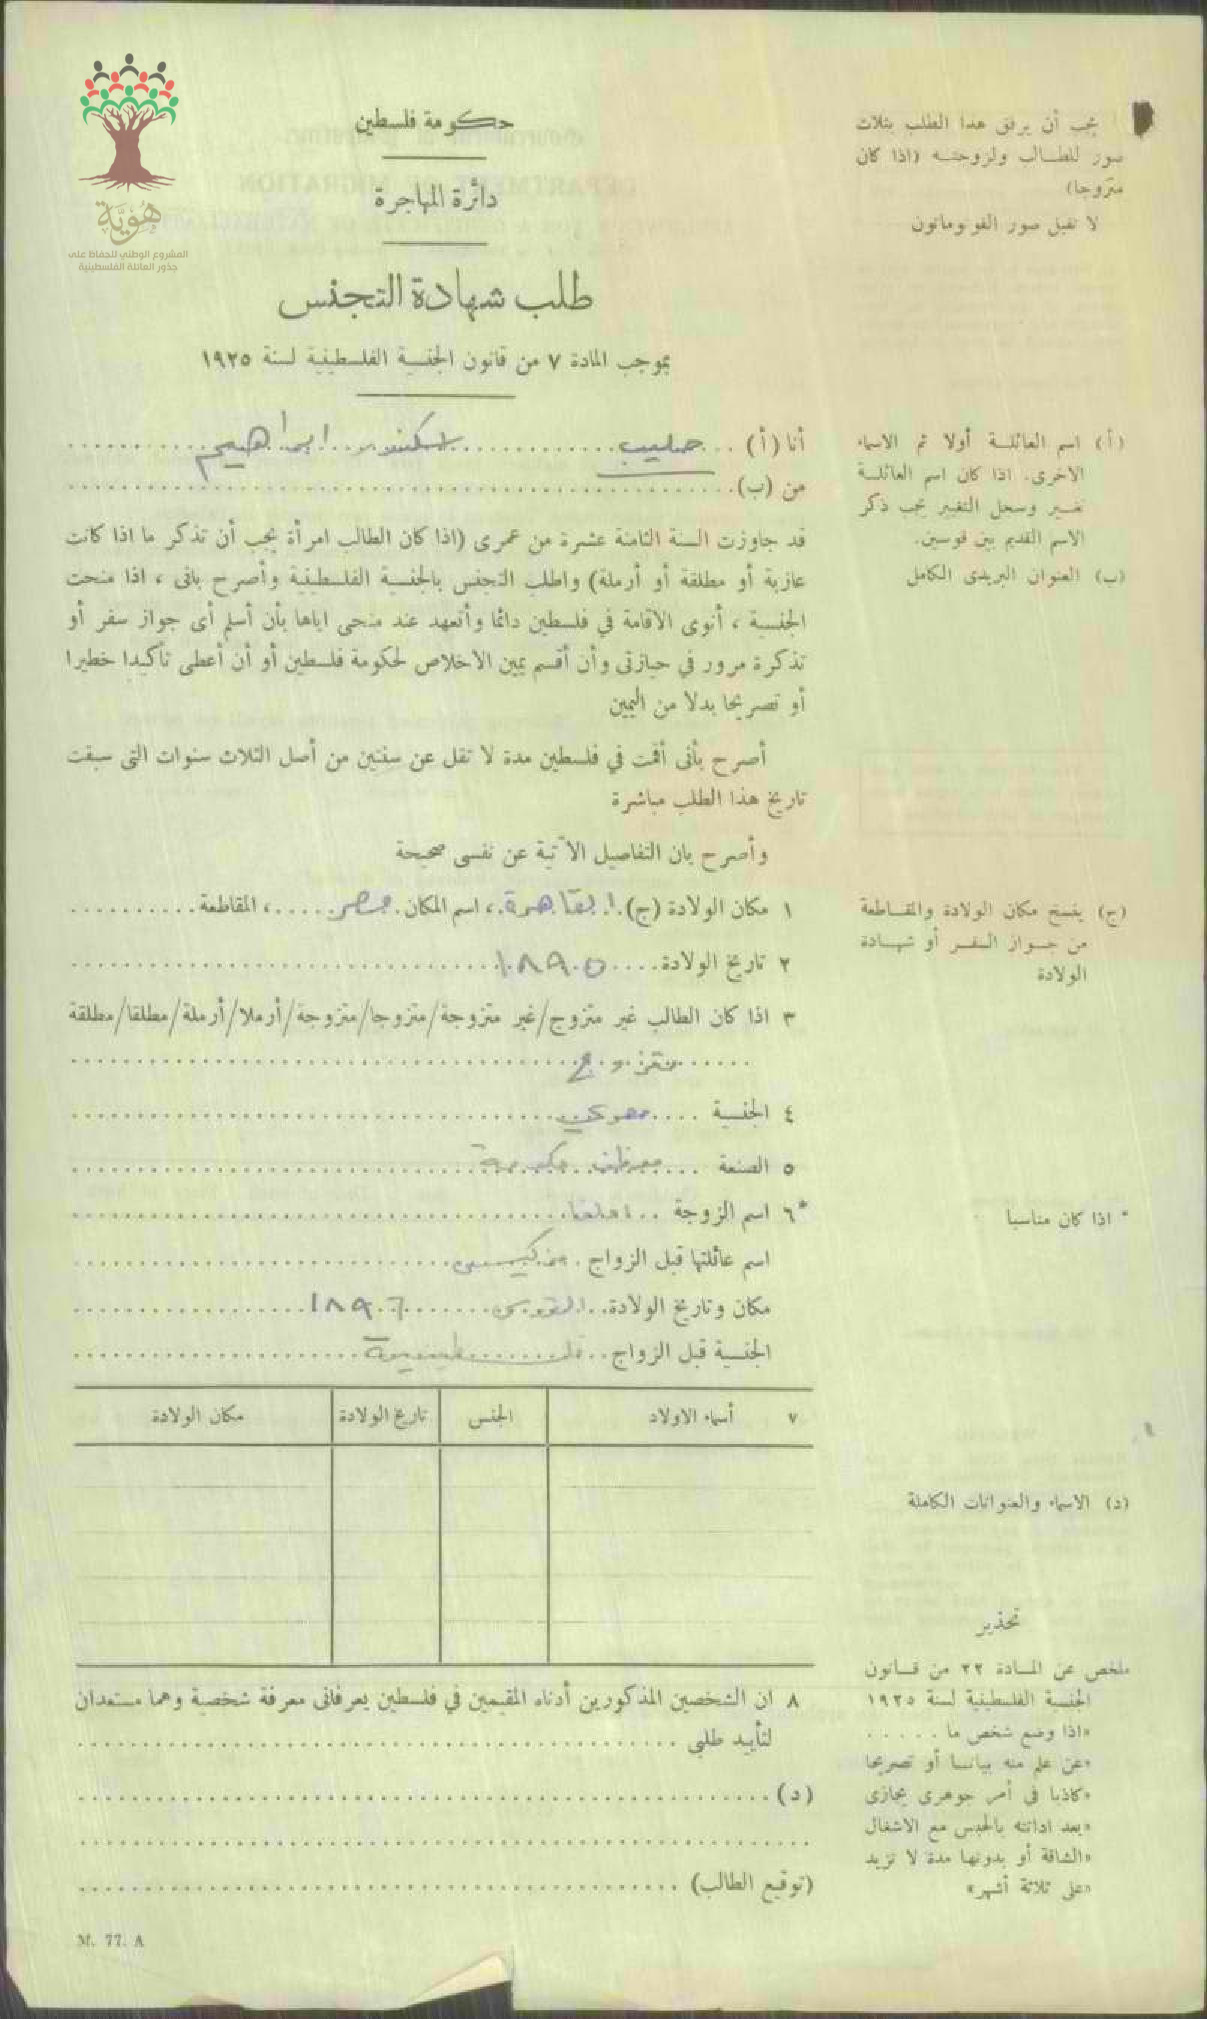 هُوِيَّة
المشروع الوطني للحفاظ على
جذور العائلة الفلسطينية
حكومة فلسطين
دائرة المهاجرة
طلب شهادة التجنس
بموجب المادة ٧ من قانون الجنسية الفلسطينية لسنة ١٩٢٥
يجب أن يرفق هذا الطلب بثلاث
صور للطالب ولزوجته (اذا كان
متزوجا)
لا تقبل صور الفوتوماتون
أنا (أ) ... صليب ... اسكندر ... ابراهيم
من (ب)
قد جاوزت السنة الثامنة عشرة من عمرى (اذا كان الطالب امرأة يجب أن تذكر ما اذا كانت
عازبة أو مطلقة أو أرملة) واطلب التجنس بالجنسية الفلسطينية وأصرح بانى ، اذا منحت
الجنسية ، أنوى الاقامة في فلسطين دائما وأتعهد عند منحى اياها بأن أسلم أى جواز سفر أو
تذكرة مرور في حيازتى وأن أقسم يمين الاخلاص لحكومة فلسطين أو أن أعطى تأكيدا خطيرا
أو تصريحا بدلا من اليمين
أصرح بأنى أقمت في فلسطين مدة لا تقل عن سنتين من أصل الثلاث سنوات التى سبقت
تاريخ هذا الطلب مباشرة
وأصرح بان التفاصيل الآتية عن نفسى صحيحة
١ مكان الولادة (ج) القاهرة ، اسم المكان مصر ، المقاطعة
٢ تاريخ الولادة ١٨٩٥
٣ اذا كان الطالب غير متزوج/غير متزوجة/متزوجا/متزوجة/أرملا/أرملة/مطلقا/مطلقة
متزوج
٤ الجنسية
٥ الصنعة موظف حكومة
*٦ اسم الزوجة
اسم عائلتها قبل الزواج
مكان وتاريخ الولادة القدس ١٨٩٦
الجنسية قبل الزواج فلسطينية
٧ أسماء الاولاد الجنس تاريخ الولادة مكان الولادة
٨ ان الشخصين المذكورين أدناه المقيمين في فلسطين يعرفانى معرفة شخصية وهما مستعدان
لتأييد طلبى
(د)
(توقيع الطالب)
(أ) اسم العائلة أولا ثم الاسماء
الاخرى. اذا كان اسم العائلة
تغير وسجل التغيير يجب ذكر
الاسم القديم بين قوسين.
(ب) العنوان البريدى الكامل
(ج) ينسخ مكان الولادة والمقاطعة
من جواز السفر أو شهادة
الولادة
* اذا كان مناسبا
(د) الاسماء والعنوانات الكاملة
تحذير
ملخص عن المادة ٢٢ من قانون
الجنسية الفلسطينية لسنة ١٩٢٥
«اذا وضع شخص ما . . . . .
«عن علم منه بيانا أو تصريحا
«كاذبا في أمر جوهرى يجازى
«بعد ادانته بالحبس مع الاشغال
«الشاقة أو بدونها مدة لا تزيد
«على ثلاثة أشهر»
M. 77. A